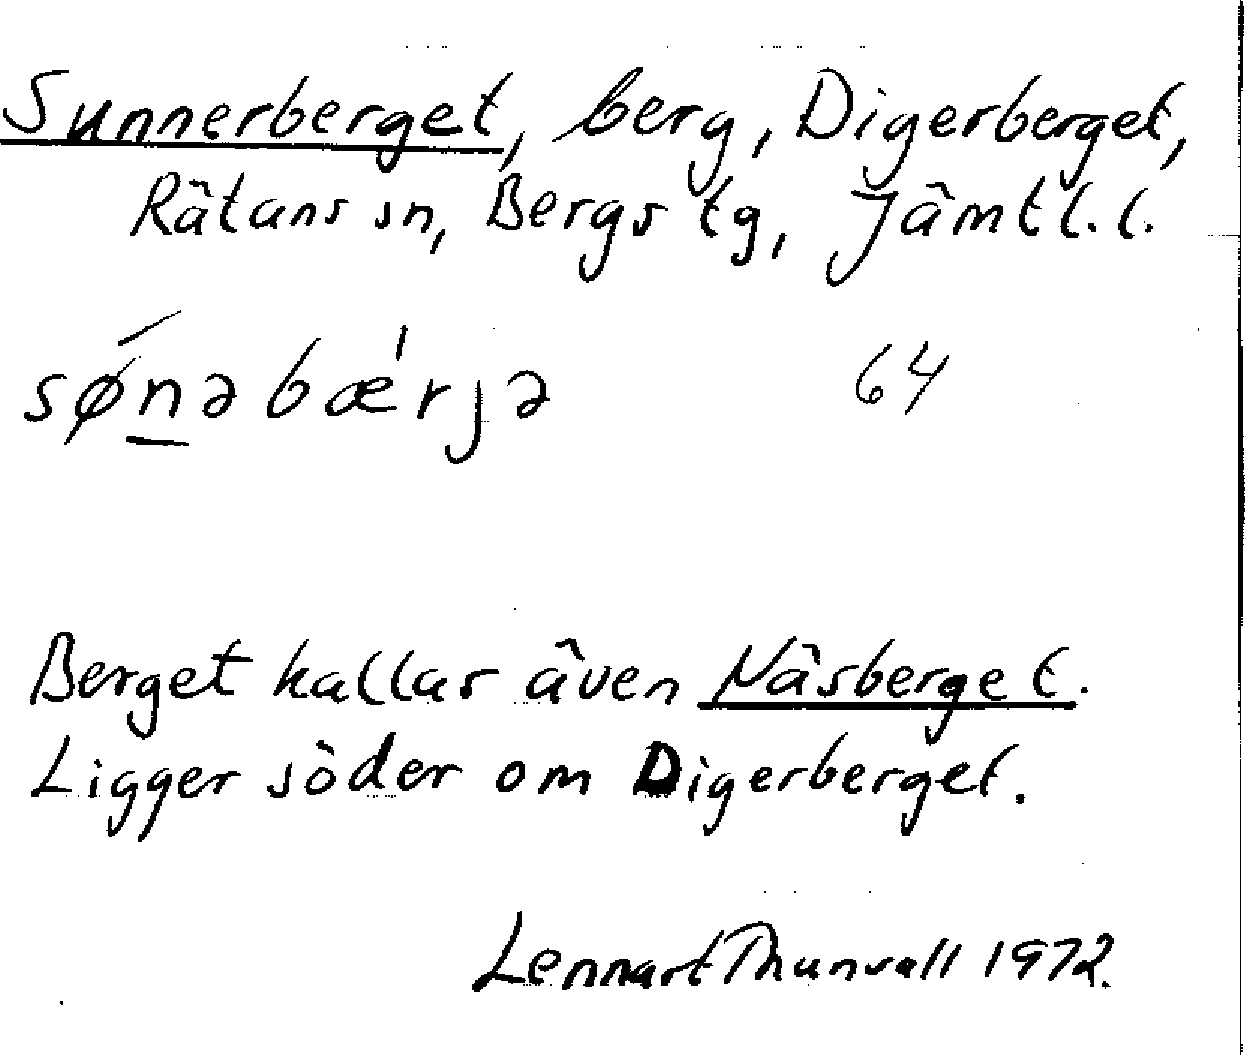 Sunnerberget, berg, Digerberget,
Rätans sn, Bergs tg, Jämtl. l.
sǿnəbæ'rjə 64
Berget kallas även Näsberget.
Ligger söder om Digerberget.
Lennart Thunvall 1972.